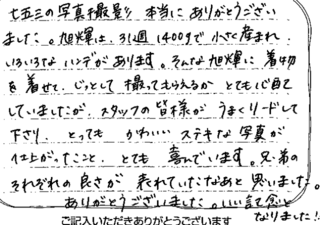 七五三の写真撮影、本当にありがとうござい
ました。旭輝は、31週1400gで小さく産まれ、
いろいろなハンデがあります。そんな旭輝に着物
を着せて、じっとして撮ってもらえるかとても心配
していましたが、スタッフの皆様がうまくリードして
下さり、とってもかわいいステキな写真が
仕上がったこと、とても喜んでいます。兄弟の
それぞれの良さが表れていたなあと思いました。
ありがとうございました。いい記念と
なりました!
ご記入いただきありがとうございます